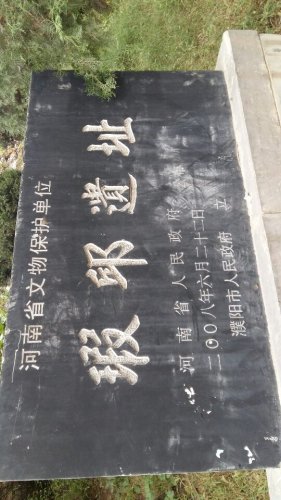 河南省文物保护单位
瑕邱遗址
河南省人民政府
二〇〇八年六月二十二日 立
濮阳市人民政府